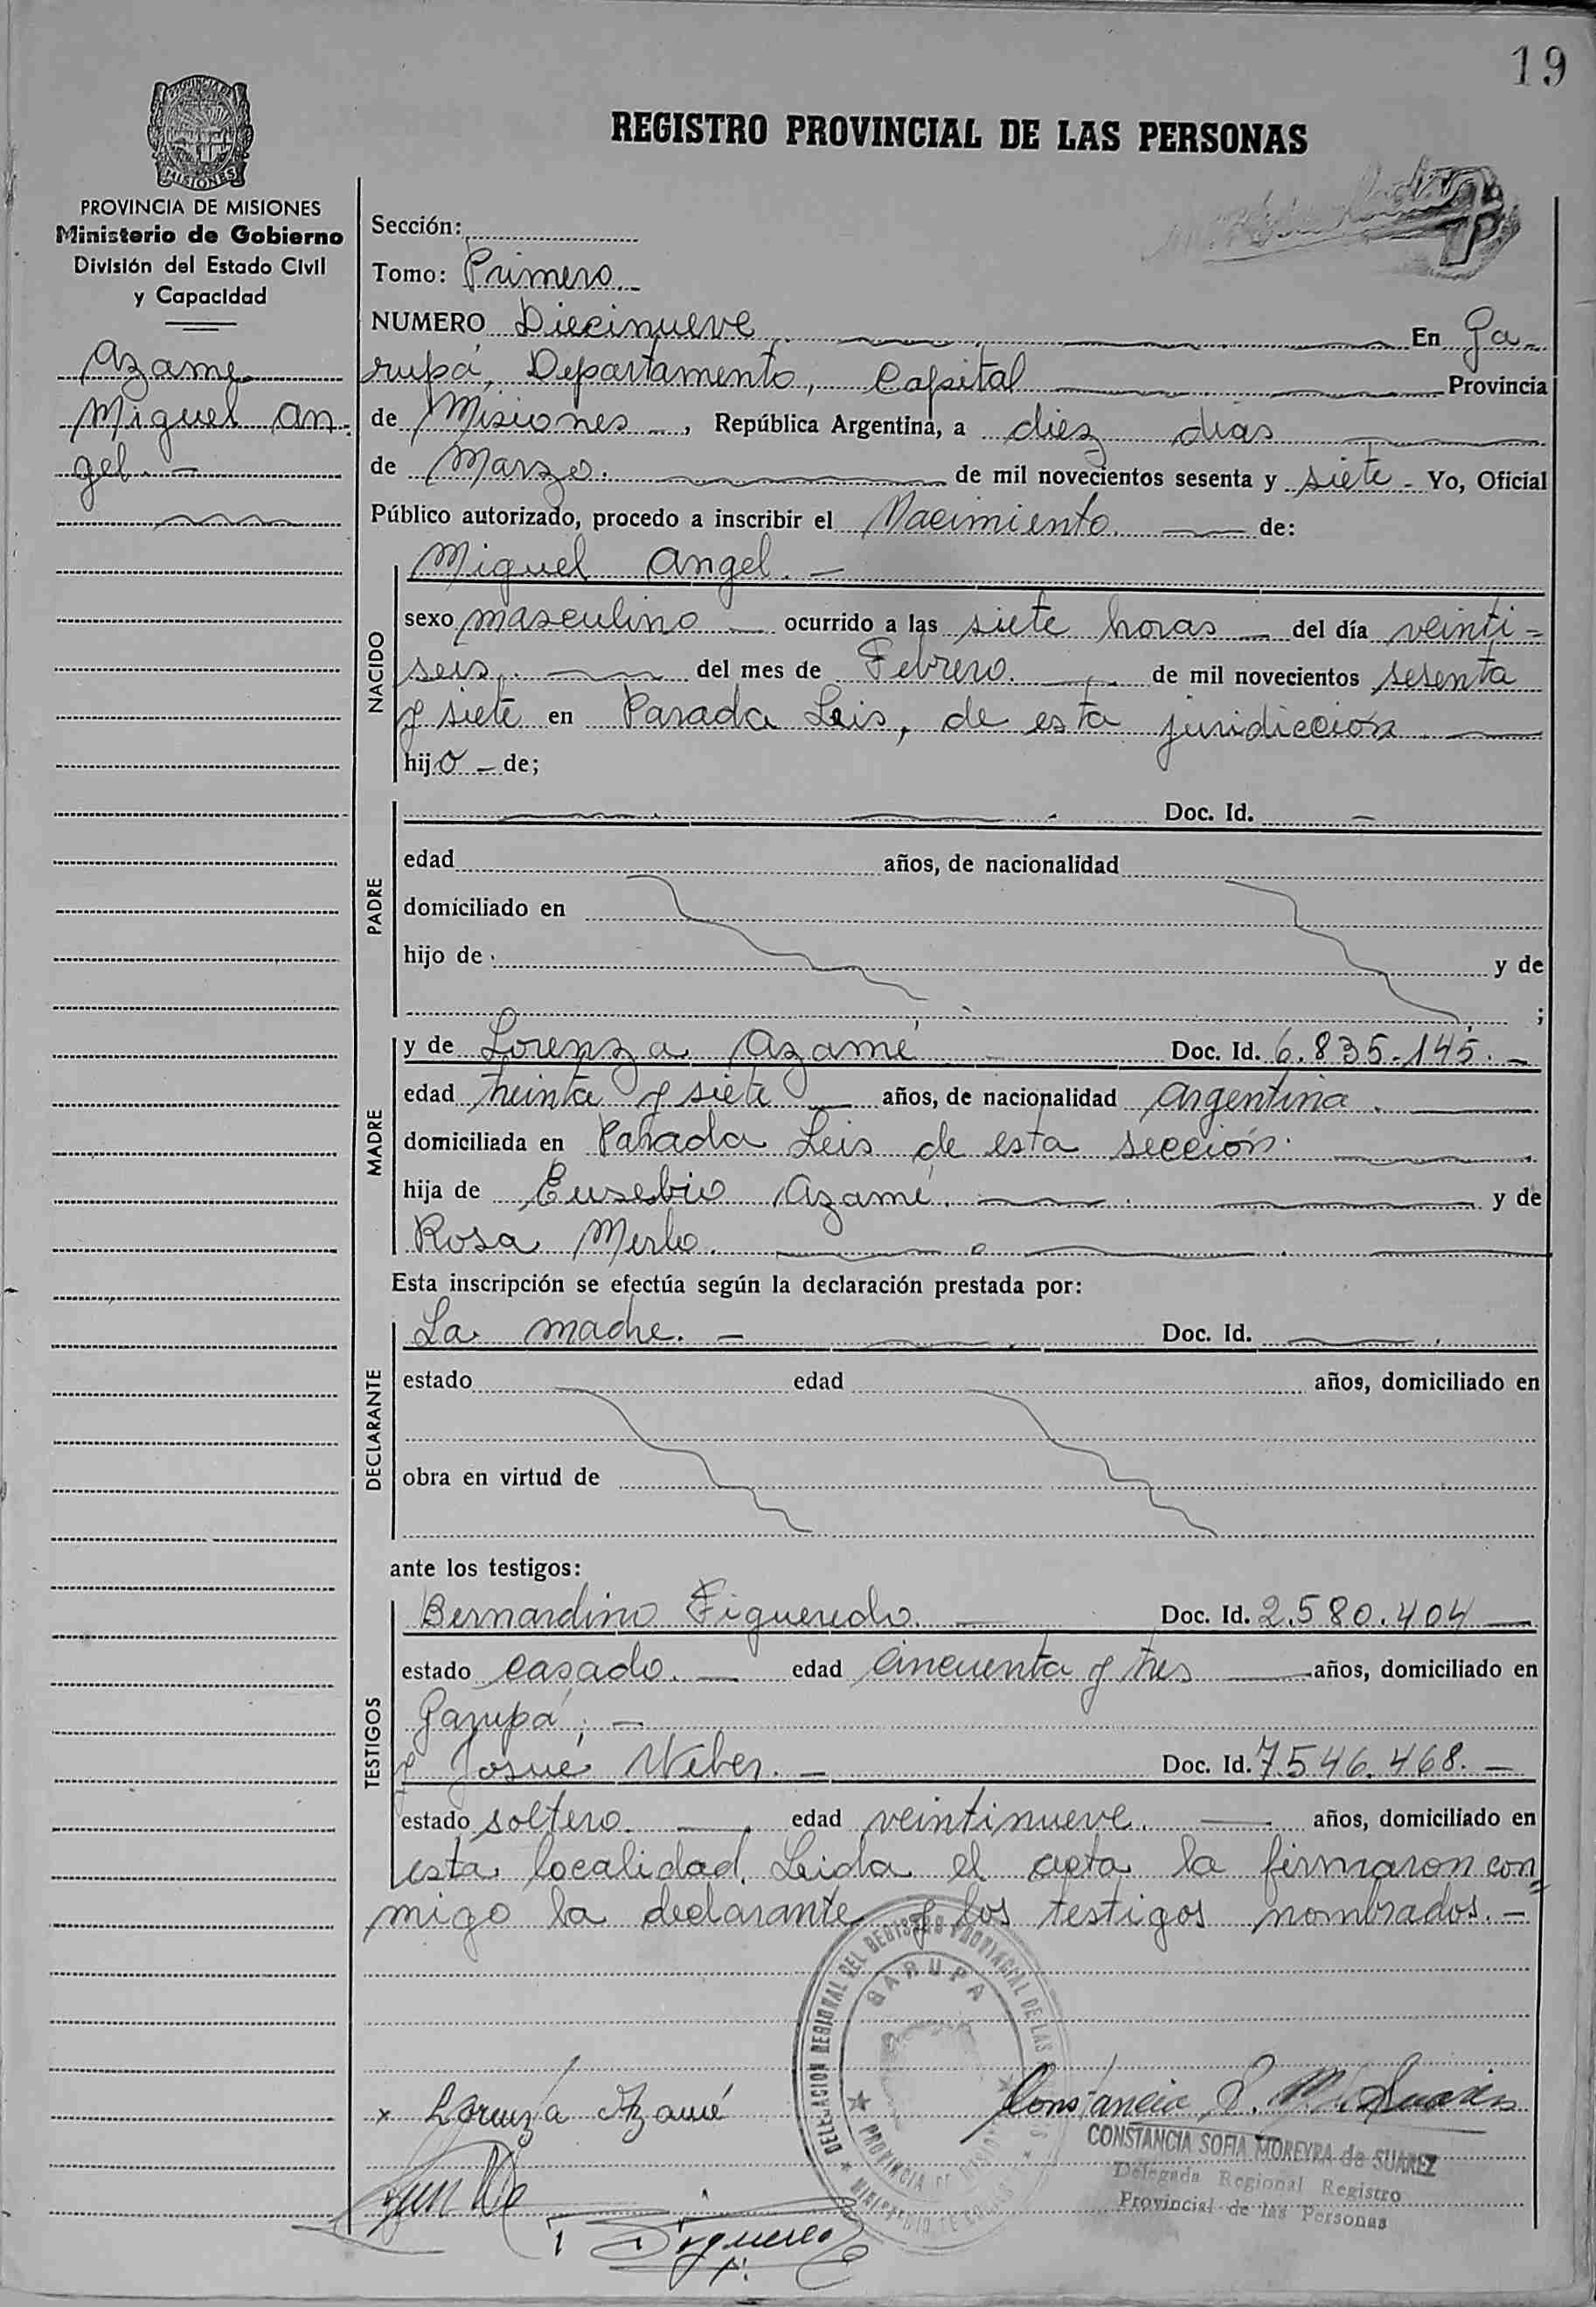 19
REGISTRO PROVINCIAL DE LAS PERSONAS
PROVINCIA DE
MISIONES
PROVINCIA DE MISIONES
Ministerio de Gobierno
División del Estado Civil
y Capacidad
Azamé
Miguel An-
gel. -
Sección:
Tomo: Primero. -
NUMERO Diecinueve En Ga-
rupá, Departamento, Capital Provincia
de Misiones -, República Argentina, a diez días
de Marzo. de mil novecientos sesenta y siete - Yo, Oficial
Público autorizado, procedo a inscribir el Nacimiento. de:
NACIDO
Miguel Angel. -
sexo masculino - ocurrido a las siete horas - del día veinti=
seis. del mes de Febrero. de mil novecientos sesenta
y siete en Parada Leis, de esta juridiccion
hijo - de;
PADRE
Doc. Id. -
edad años, de nacionalidad
domiciliado en
hijo de y de
;
MADRE
y de Lorenza Azamé Doc. Id. 6.835.145. -
edad treinta y siete - años, de nacionalidad Argentina.
domiciliada en Parada Leis de esta sección.
hija de Eusebio Azamé. y de
Rosa Merlo.
Esta inscripción se efectúa según la declaración prestada por:
DECLARANTE
La madre. - Doc. Id.
estado edad años, domiciliado en
obra en virtud de
ante los testigos:
TESTIGOS
Bernardino Figueredo. - Doc. Id. 2.580.404 -
estado casado. - edad cincuenta y tres - años, domiciliado en
Garupá. -
y Josué Weber. - Doc. Id. 7.546.468. -
estado soltero. - edad veintinueve. - años, domiciliado en
esta localidad. Leida el acta la firmaron con=
migo la declarante y los testigos nombrados. -
DELEGACION REGIONAL DEL REGISTRO PROVINCIAL DE LAS
GARUPA
PROVINCIA DE
x Lorenza Azamé
Constancia S. M. de Suarez
CONSTANCIA SOFIA MOREYRA de SUAREZ
Delegada Regional Registro
Provincial de las Personas